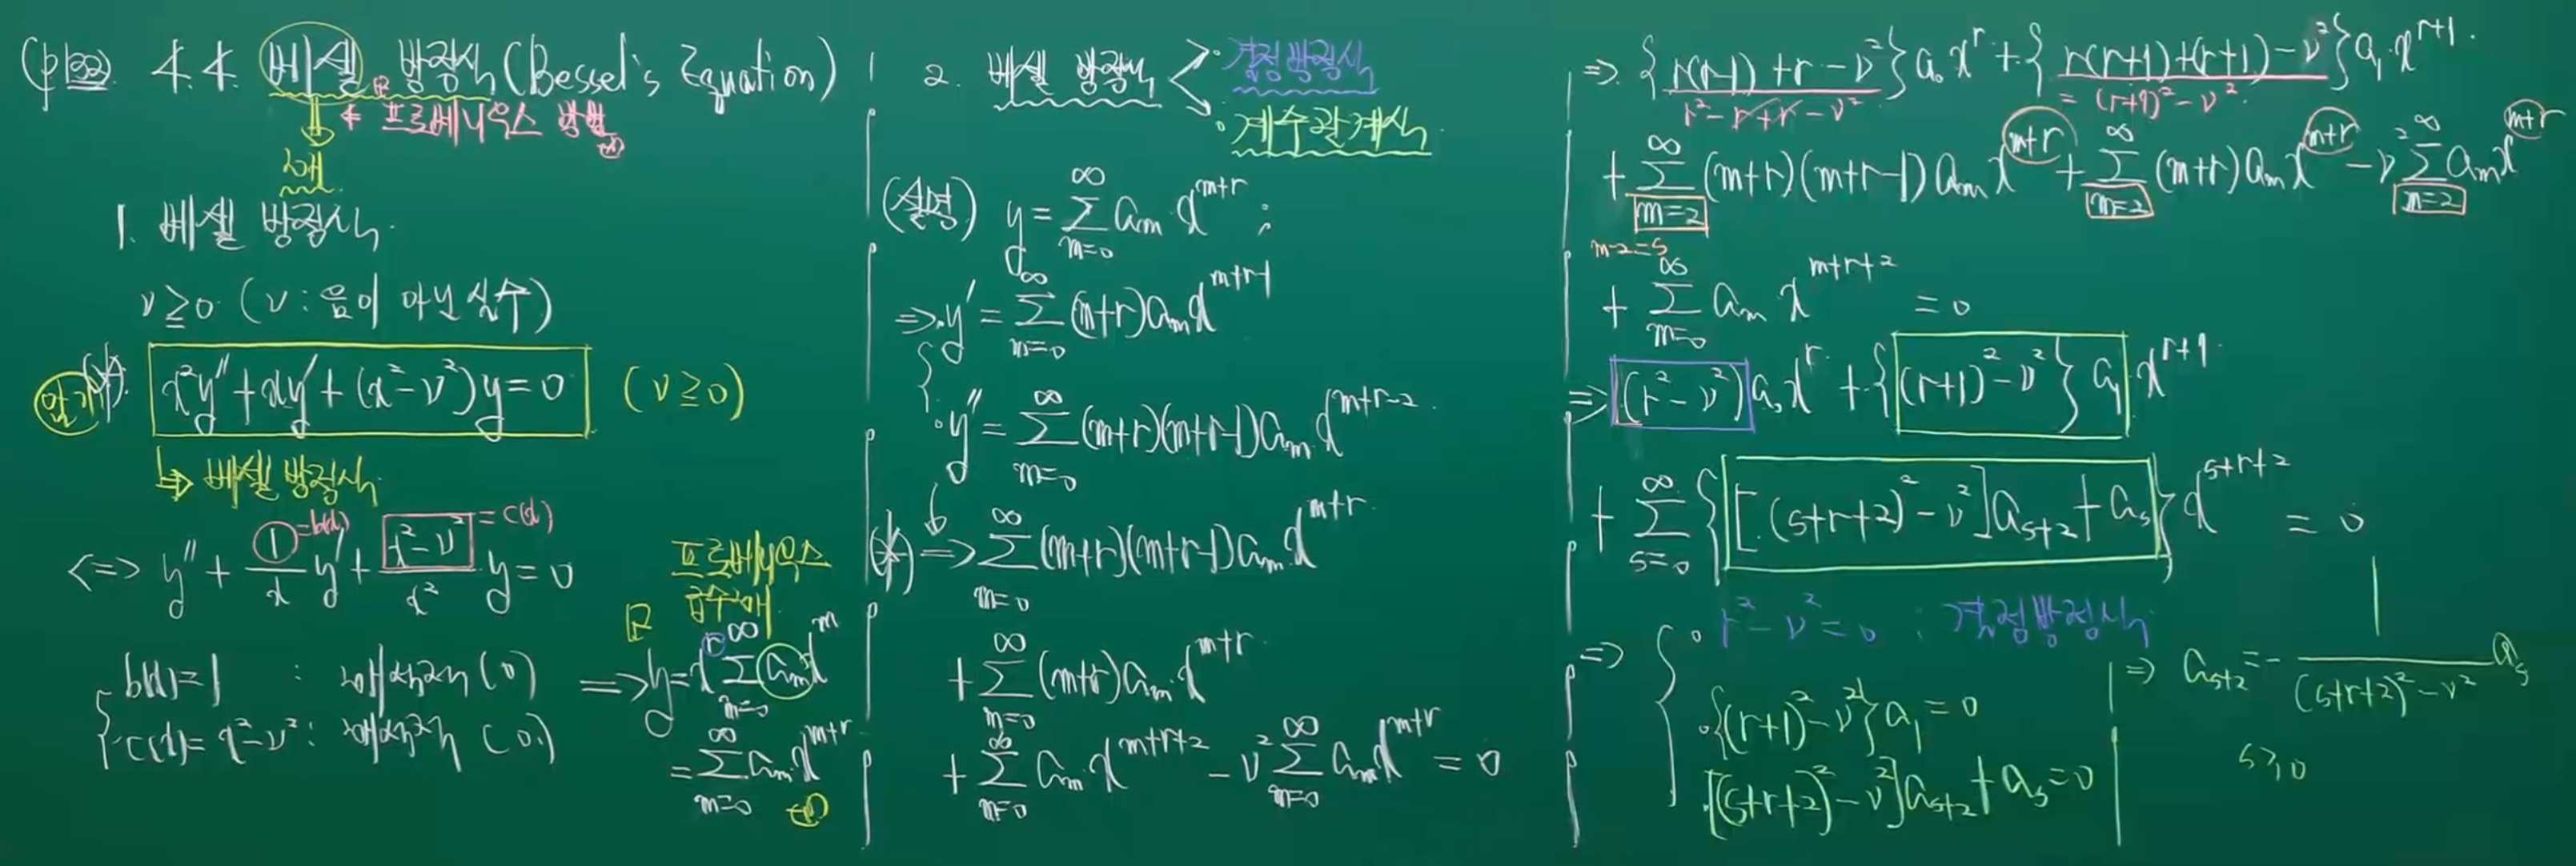 (p192). 4.4. 베셀 방정식 (Bessel's Equation)
← 프로베니우스 방법
해
1. 베셀 방정식
ν ≧ 0. (ν : 음이 아닌 실수)
암기 (*). x²y″ + xy′ + (x² − ν²)y = 0 (ν ≧ 0)
↳ 베셀 방정식
<=> y″ + 1/x y′ + (x² − ν²)/x² y = 0
① = b(x)
x² − ν² = c(x)
b(x) = 1 : 해석적 (0)
c(x) = x² − ν² : 해석적 (0)
프로베니우스
급수해
=> y = x^r Σ_{m=0}^{∞} a_m x^m
= Σ_{m=0}^{∞} a_m x^{m+r}
2. 베셀 방정식
· 결정방정식
· 계수관계식
(설명) y = Σ_{m=0}^{∞} a_m x^{m+r} ;
=> y′ = Σ_{m=0}^{∞} (m+r) a_m x^{m+r−1}
y″ = Σ_{m=0}^{∞} (m+r)(m+r−1) a_m x^{m+r−2}
(*) => Σ_{m=0}^{∞} (m+r)(m+r−1) a_m x^{m+r}
+ Σ_{m=0}^{∞} (m+r) a_m x^{m+r}
+ Σ_{m=0}^{∞} a_m x^{m+r+2} − ν² Σ_{m=0}^{∞} a_m x^{m+r} = 0
=> {r(r−1) + r − ν²} a₀ x^r + {r(r+1) + (r+1) − ν²} a₁ x^{r+1}
r² − r + r − ν²
= (r+1)² − ν²
+ Σ_{m=2}^{∞} (m+r)(m+r−1) a_m x^{m+r} + Σ_{m=2}^{∞} (m+r) a_m x^{m+r} − ν² Σ_{m=2}^{∞} a_m x^{m+r}
m−2=s
+ Σ_{m=0}^{∞} a_m x^{m+r+2} = 0
=> (r² − ν²) a₀ x^r + {(r+1)² − ν²} a₁ x^{r+1}
+ Σ_{s=0}^{∞} {[(s+r+2)² − ν²] a_{s+2} + a_s} x^{s+r+2} = 0
=> r² − ν² = 0 : 결정방정식
{(r+1)² − ν²} a₁ = 0
[(s+r+2)² − ν²] a_{s+2} + a_s = 0
=> a_{s+2} = − 1/((s+r+2)² − ν²) a_s
s ≥ 0